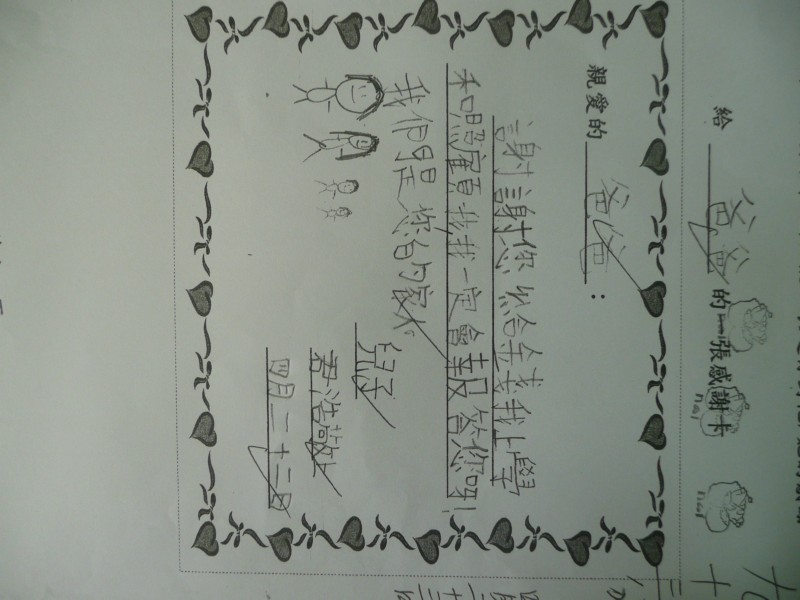 給爸爸的一張感謝卡
親愛的爸爸：
謝謝您給金錢我上學
和照顧我我一定會報答您呀!
我們是您的家人。
兒子
君浩敬上
四月二十二日